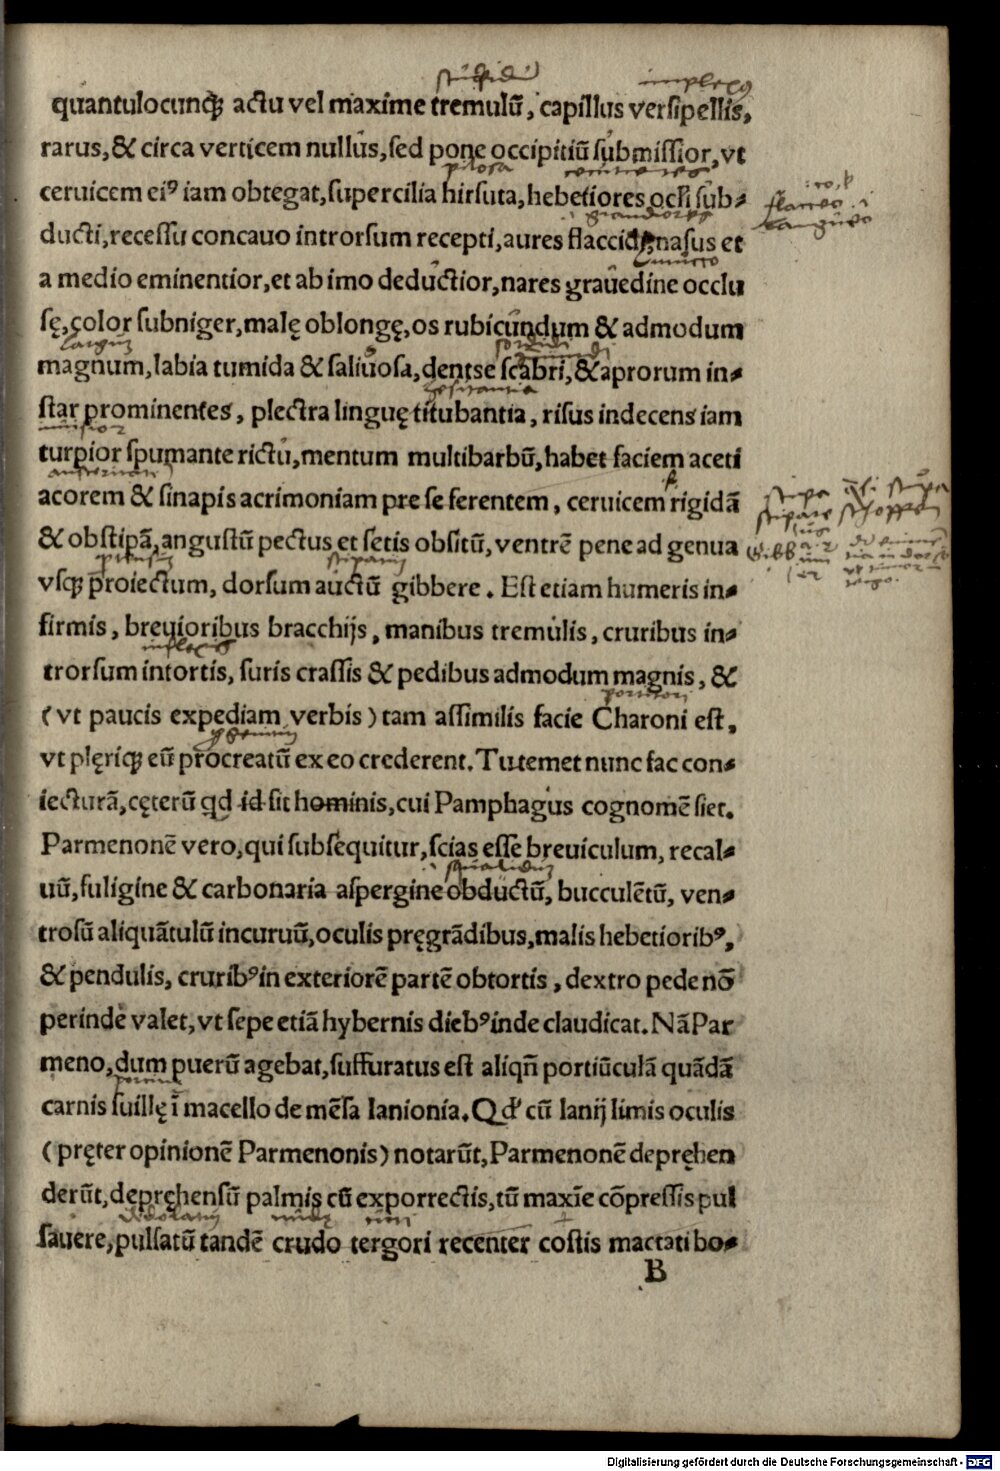 quantulocunqꝫ actu vel maxime tremulū, capillus versipellis,
rarus, & circa verticem nullus, sed pone occipitiū submissior, vt
ceruicem eiꝰ iam obtegat, supercilia hirsuta, hebetiores ocli sub-
ducti, recessu concauo introrsum recepti, aures flaccidę, nasus et
a medio eminentior, et ab imo deductior, nares grauedine occlu
sę, color subniger, malę oblongę, os rubicundum & admodum
magnum, labia tumida & saliuosa, dentse scabri, & aprorum in-
star prominentes, plectra linguę titubantia, risus indecens iam
turpior spumante rictu, mentum multibarbū, habet faciem aceti
acorem & sinapis acrimoniam pre se ferentem, ceruicem rigidā
& obstipā, angustū pectus et setis obsitū, ventrē pene ad genua
vsqꝫ proiectum, dorsum auctū gibbere. Est etiam humeris in-
firmis, breuioribus bracchijs, manibus tremulis, cruribus in-
trorsum intortis, suris crassis & pedibus admodum magnis, &
(vt paucis expediam verbis) tam assimilis facie Charoni est,
vt plęriqꝫ eū procreatū ex eo crederent. Tutemet nunc fac con-
iecturā, cęterū qd id sit hominis, cui Pamphagus cognomē siet.
Parmenonē vero, qui subsequitur, scias esse breuiculum, recal-
uū, fuligine & carbonaria aspergine obductū, bucculētū, ven-
trosū aliquātulū incuruū, oculis pręgrādibus, malis hebetioribꝰ,
& pendulis, cruribꝰ in exteriorē partē obtortis, dextro pede nō
perinde valet, vt sepe etiā hybernis diebꝰ inde claudicat. Nā Par
meno, dum puerū agebat, suffuratus est aliqñ portiūculā quādā
carnis suillę ī macello de mēsa lanionia. Qd' cū lanij limis oculis
(pręter opinionē Parmenonis) notarūt, Parmenonē depręhen
derūt, depręhensū palmis cū exporrectis, tū maxīe cōpressis pul
sauere, pulsatū tandē crudo tergori recenter costis mactati bo-
B
Digitalisierung gefördert durch die Deutsche Forschungsgemeinschaft - DFG